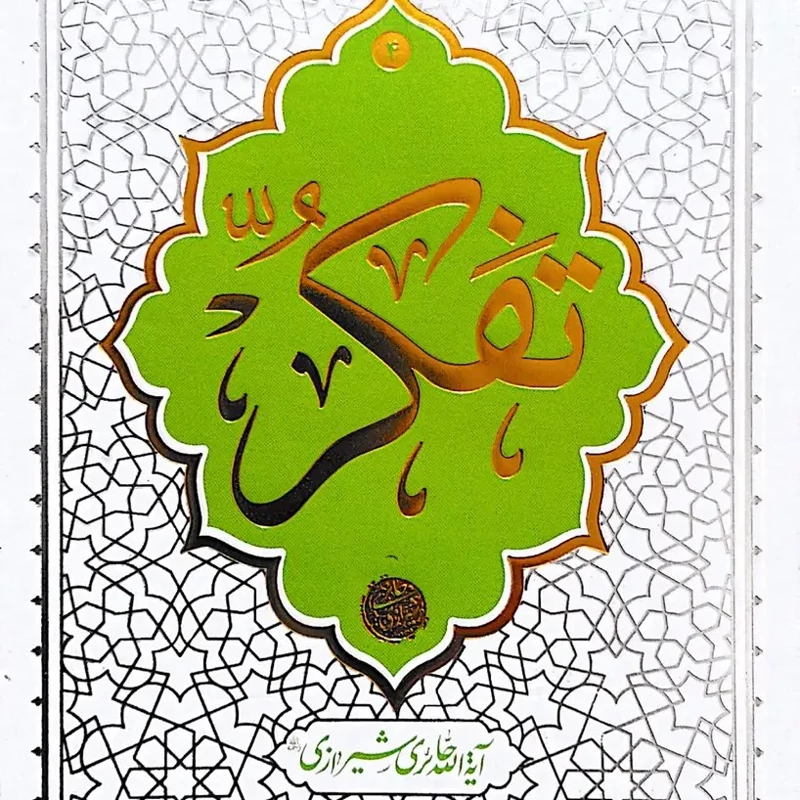 ۴
تفکّر
آیة الله حائری شیرازی